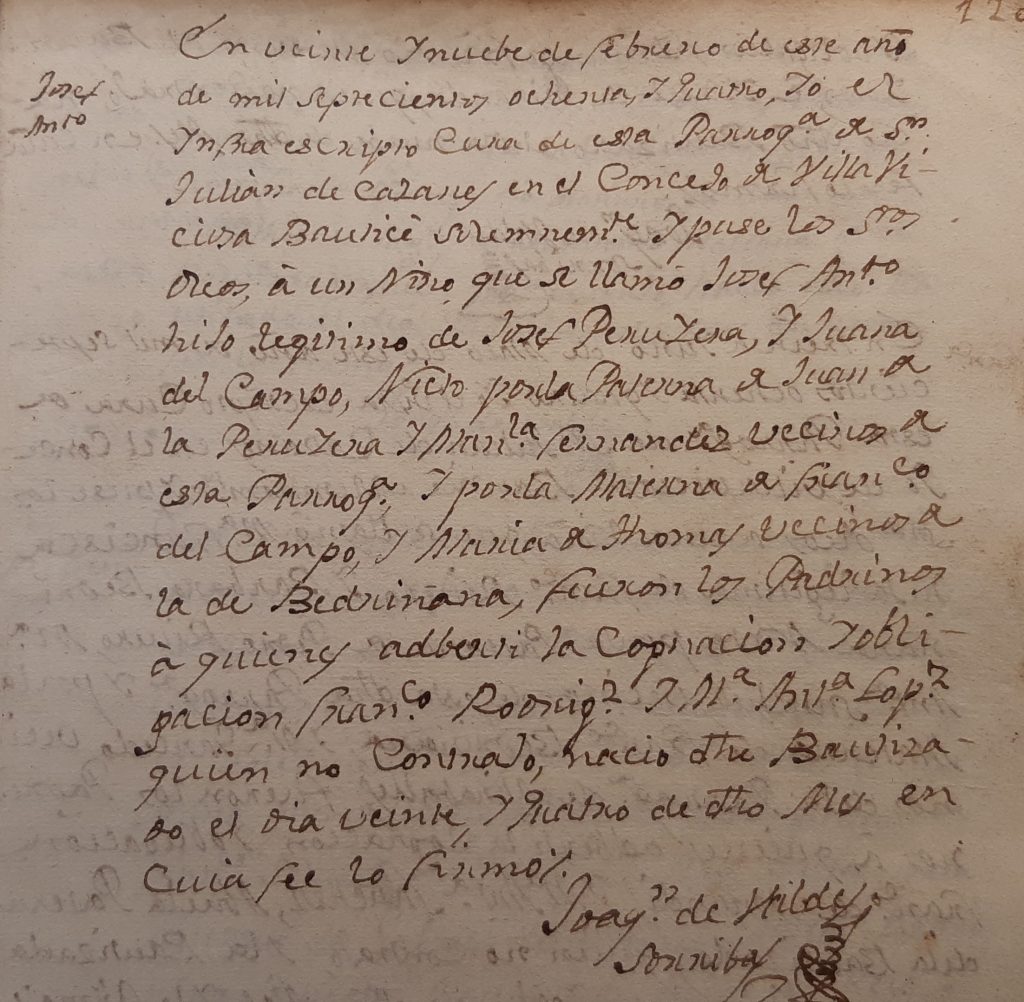 En veinte Y nuebe de febrero de este año
Josef
Anto
de mil septecientos, ochenta, Y quatro, Yo el
Ynfra escripto Cura de esta Parroqa de Sn
Julián de Cazanes en el Concejo de Villa Vi-
ciosa Bauticè solemnemte Y puse los Stos
Oleos, à un Niño, que se llamó Josef Anto
hijo legitimo de Josef Peruyera, Y Juana
del Campo, Nieto por la Paterna de Juan de
la Peruyera Y Manla fernandez vecinos de
esta Parroqa, Y por la Materna de franco
del Campo, Y Maria de Thomas vecinos de
la de Bedriñana, fueron los Padrinos
à quienes adberti la Copnacion Yobli-
gacion franco Rodrigz Y Ma Anta Lopz
quien no Contrajo, nacio dho Bautiza-
do el dia veinte, Y quatro de dho Mes en
Cuia fee lo firmo
Joaqn de Hildes
Sorribas